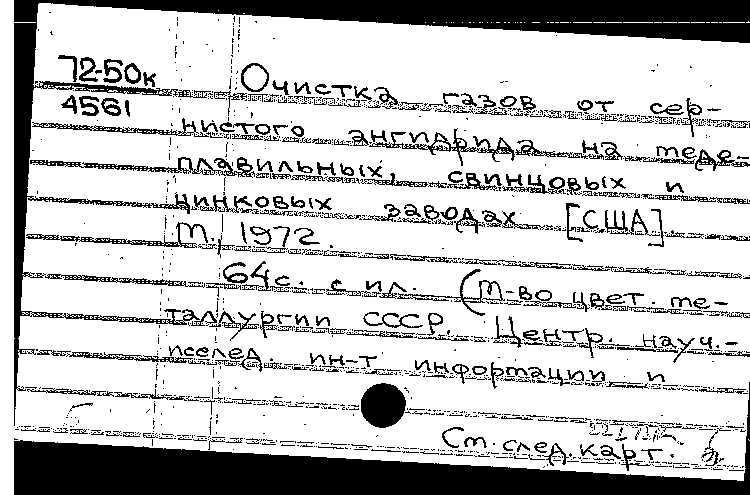 72-50к
4561
Очистка газов от сер-
нистого ангидрида на меде-
плавильных, свинцовых и
цинковых заводах [США].
М., 1972.
64с. с ил. (М-во цвет. ме-
таллургии СССР. Центр. науч.-
исслед. ин-т информации и
См. след. карт.